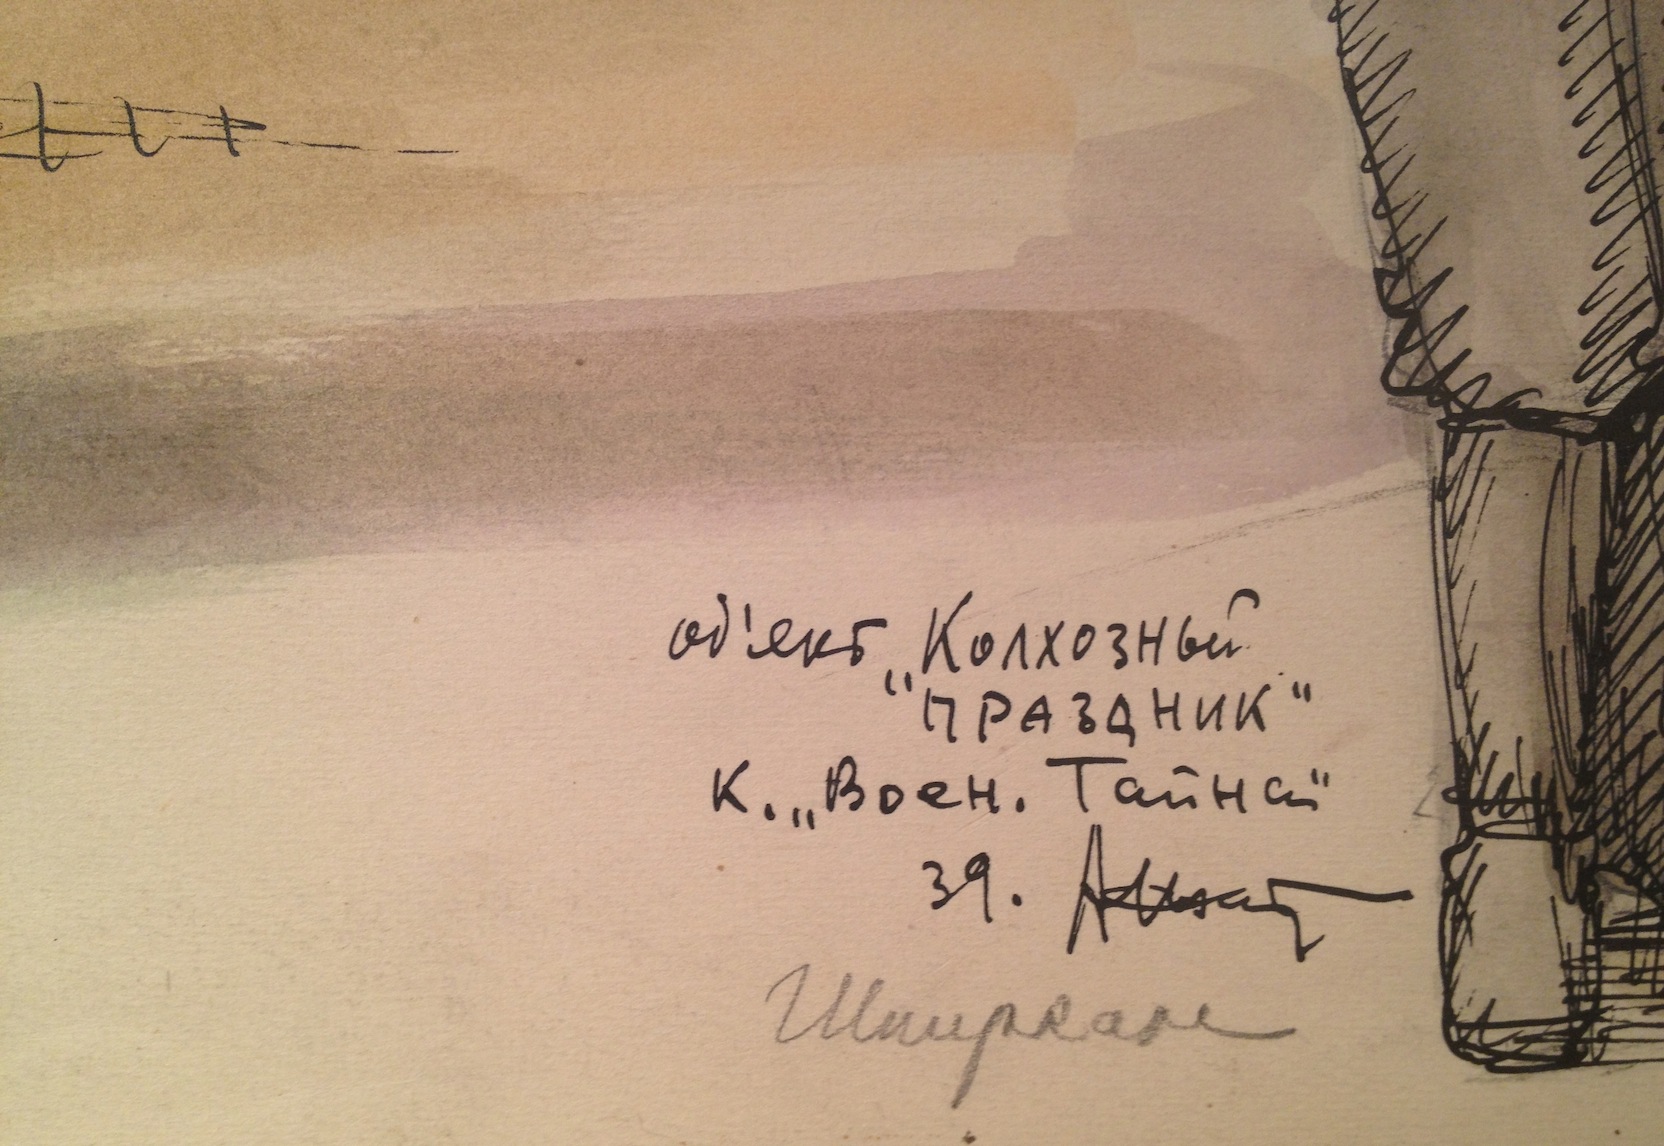 об'ект „Колхозный
"праздник"
к. „Воен. Тайна"
39.